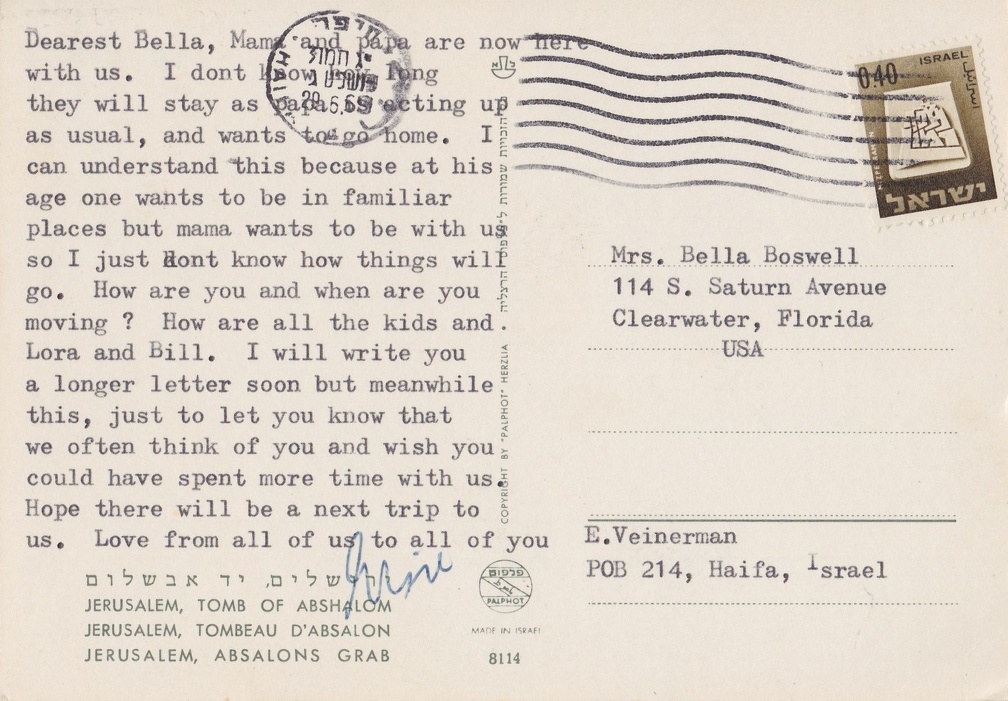 Dearest Bella, Mama and papa are now here
with us. I dont know how long
they will stay as papa is acting up
as usual, and wants to go home. I
can understand this because at his
age one wants to be in familiar
places but mama wants to be with us
so I just dont know how things will
go. How are you and when are you
moving ? How are all the kids and.
Lora and Bill. I will write you
a longer letter soon but meanwhile
this, just to let you know that
we often think of you and wish you
could have spent more time with us.
Hope there will be a next trip to
us. Love from all of us to all of you
ירושלים, יד אבשלום
JERUSALEM, TOMB OF ABSHALOM
JERUSALEM, TOMBEAU D'ABSALON
JERUSALEM, ABSALONS GRAB
COPYRIGHT BY "PALPHOT" HERZLIA
פלפוט
PALPHOT
MADE IN ISRAEL
8114
ISRAEL
0.40
اسرائيل
ישראל
Mrs. Bella Boswell
114 S. Saturn Avenue
Clearwater, Florida
USA
E.Veinerman
POB 214, Haifa, Israel